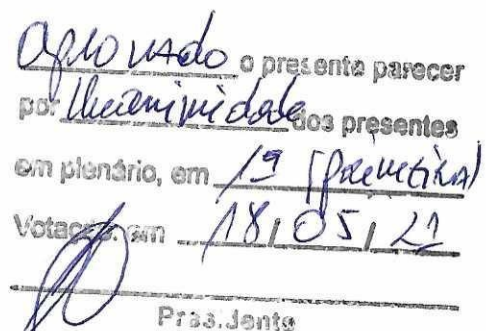 aprovado o presente parecer
por Unanimidade dos presentes
em plenário, em 1ª (primeira)
Votação, em 18/05/21
Presidente